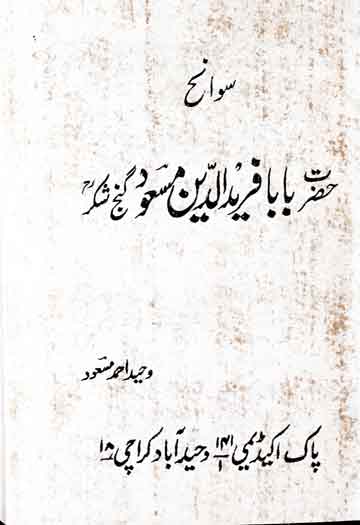 سوانح
حضرت بابا فرید الدین مسعود گنج شکرؒ
وحید احمد مسعود
پاک اکیڈیمی ۱۴۱/۱ وحید آباد کراچی ۱۸